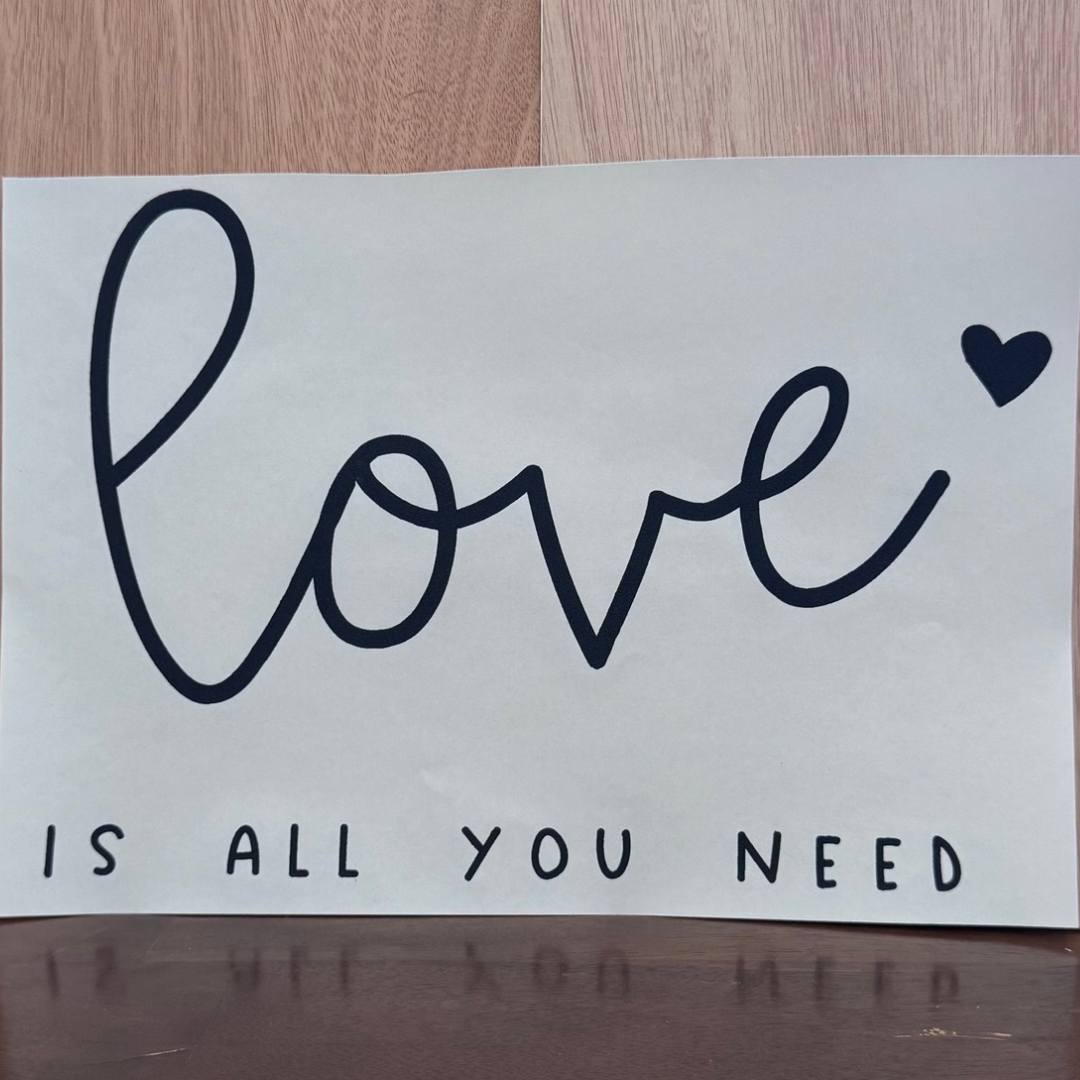 love
IS ALL YOU NEED